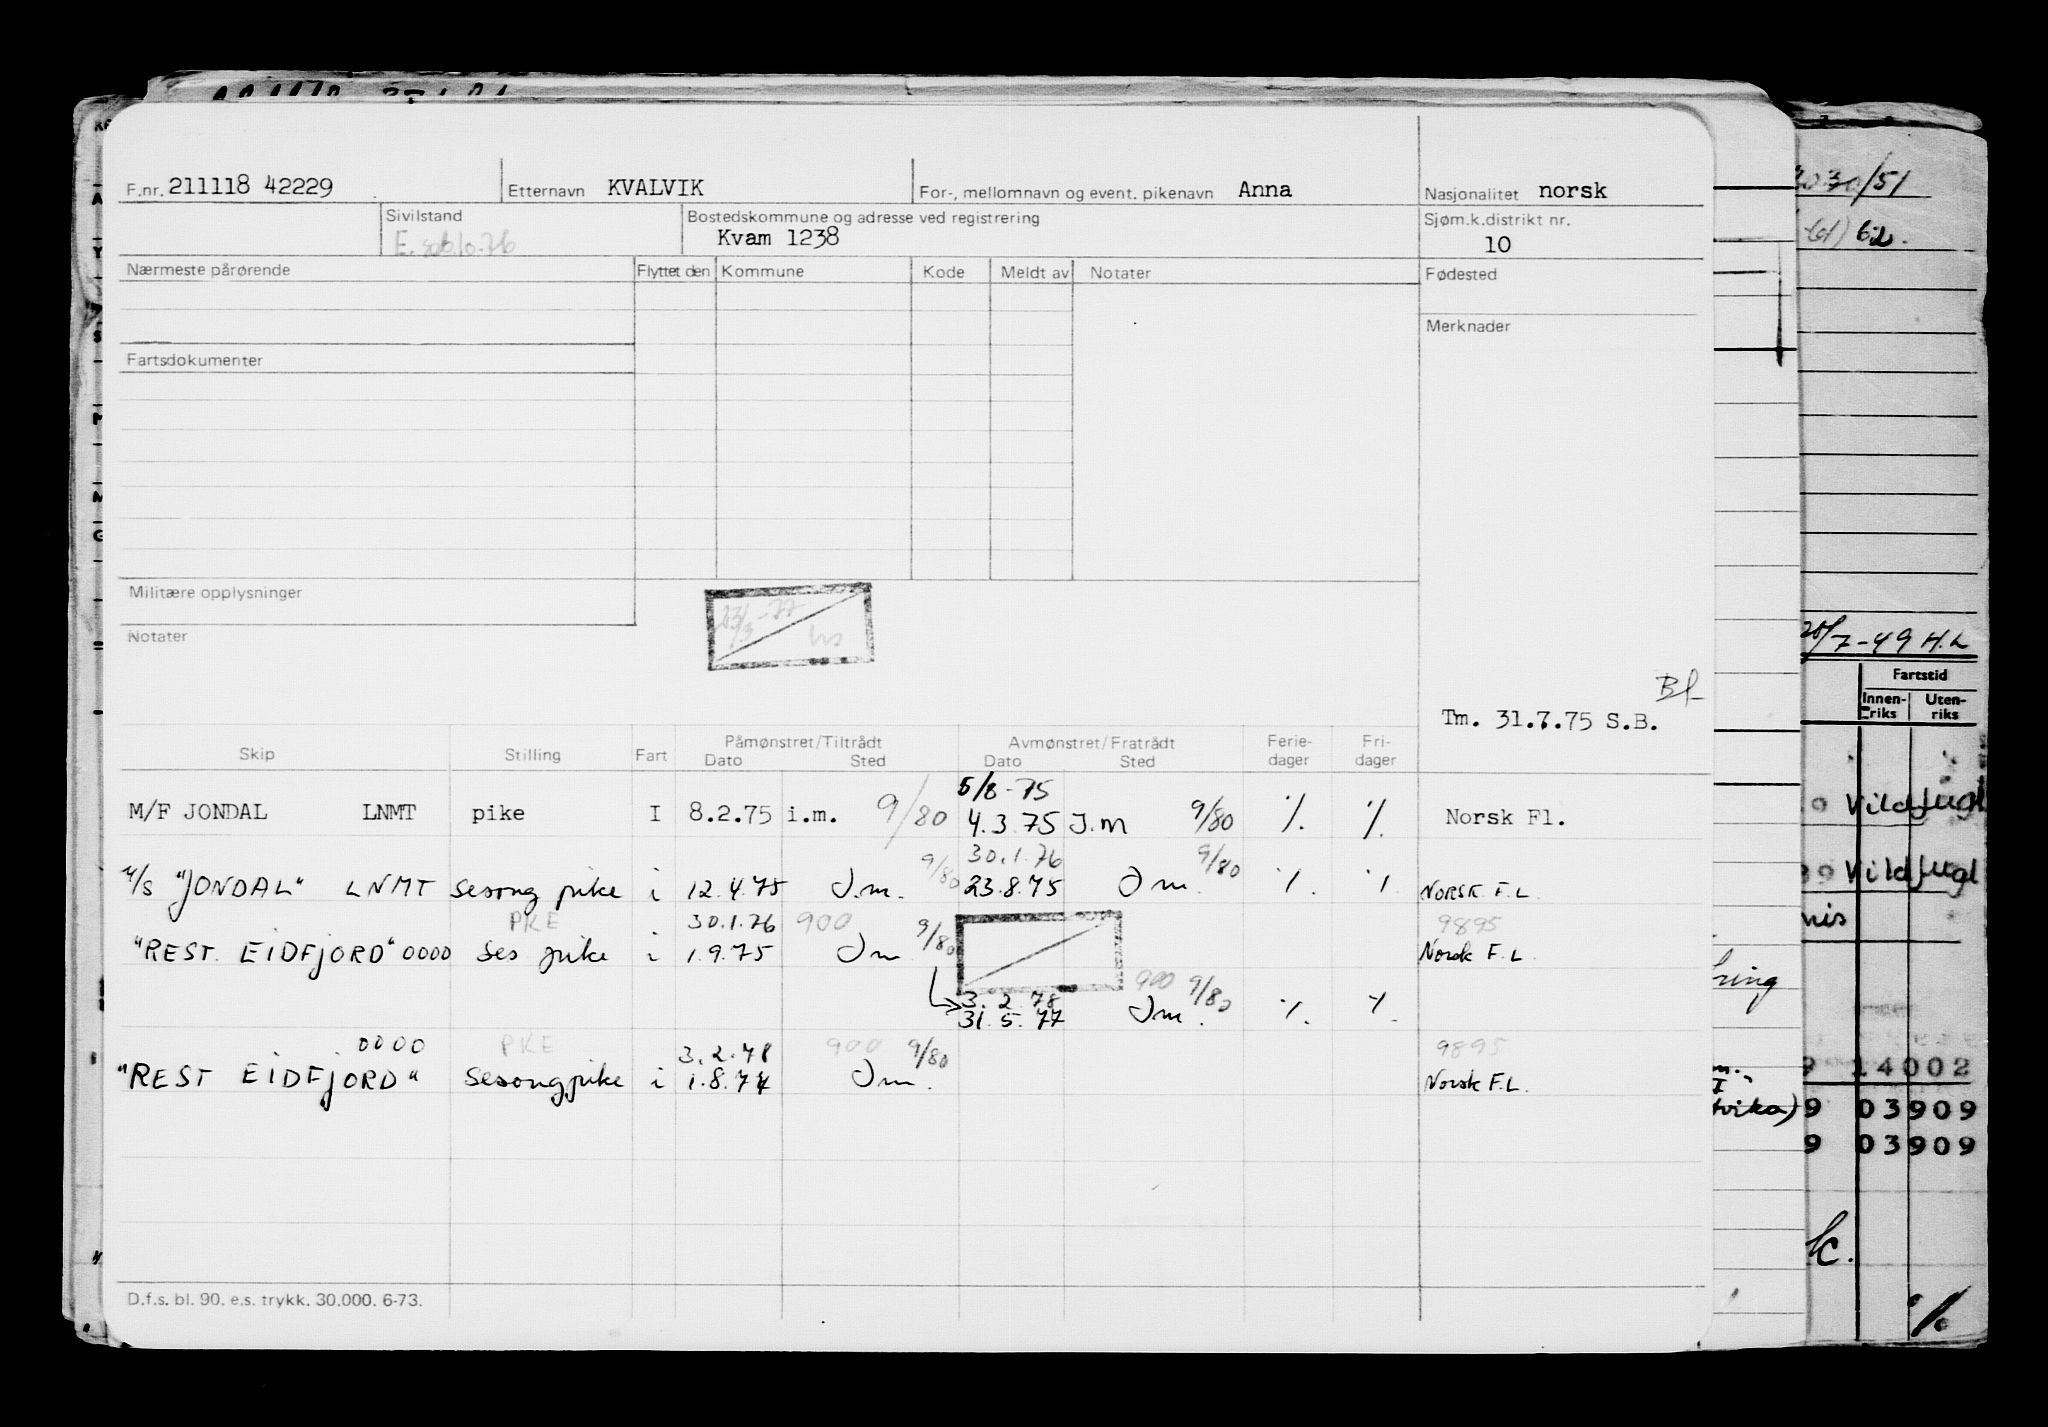 F.nr. 211118 42229 Etternavn KVALVIK For-, mellomnavn og event. pikenavn Anna Nasjonalitet norsk
Sivilstand Bostedskommune og adresse ved registrering Sjøm.k.distrikt nr.
Kvam 1238 10
Nærmeste pårørende Flyttet den Kommune Kode Meldt av Notater Fødested
Merknader
Fartsdokumenter
Militære opplysninger
23/3-77
Notater
Tm. 31.7.75 S.B.
Påmønstret/Tiltrådt Avmønstret/Fratrådt Ferie- Fri-
Skip Stilling Fart Dato Sted Dato Sted dager dager
5/8-75
M/F JONDAL LNMT pike I 8.2.75 i.m. 9/80 4.3.75 J.m 9/80 % % Norsk Fl.
9/80 30.1.76 9/80
M/S "JONDAL" LNMT sesong pike i 12.4.75 J.m. 23.8.75 Jm. % % NORSK F.L.
PKE 30.1.76 900 9/80 9895
"REST. EIDFJORD" 0000 ses pike i 1.9.75 Jm Norsk F.L.
3.2.78 900 9/80
31.5.77 Jm. % %
0000 PKE 3.2.78 900 9/80 9895
"REST EIDFJORD" Sesongpike i 1.8.77 Jm. Norsk F.L.
D.f.s. bl. 90. e.s. trykk. 30.000. 6-73.
30/51
62.
7-49 H.L
Fartstid
Innen- Uten-
riks riks
Vildfugl
Vildfugl
14002
9 03909
9 03909
k.
%